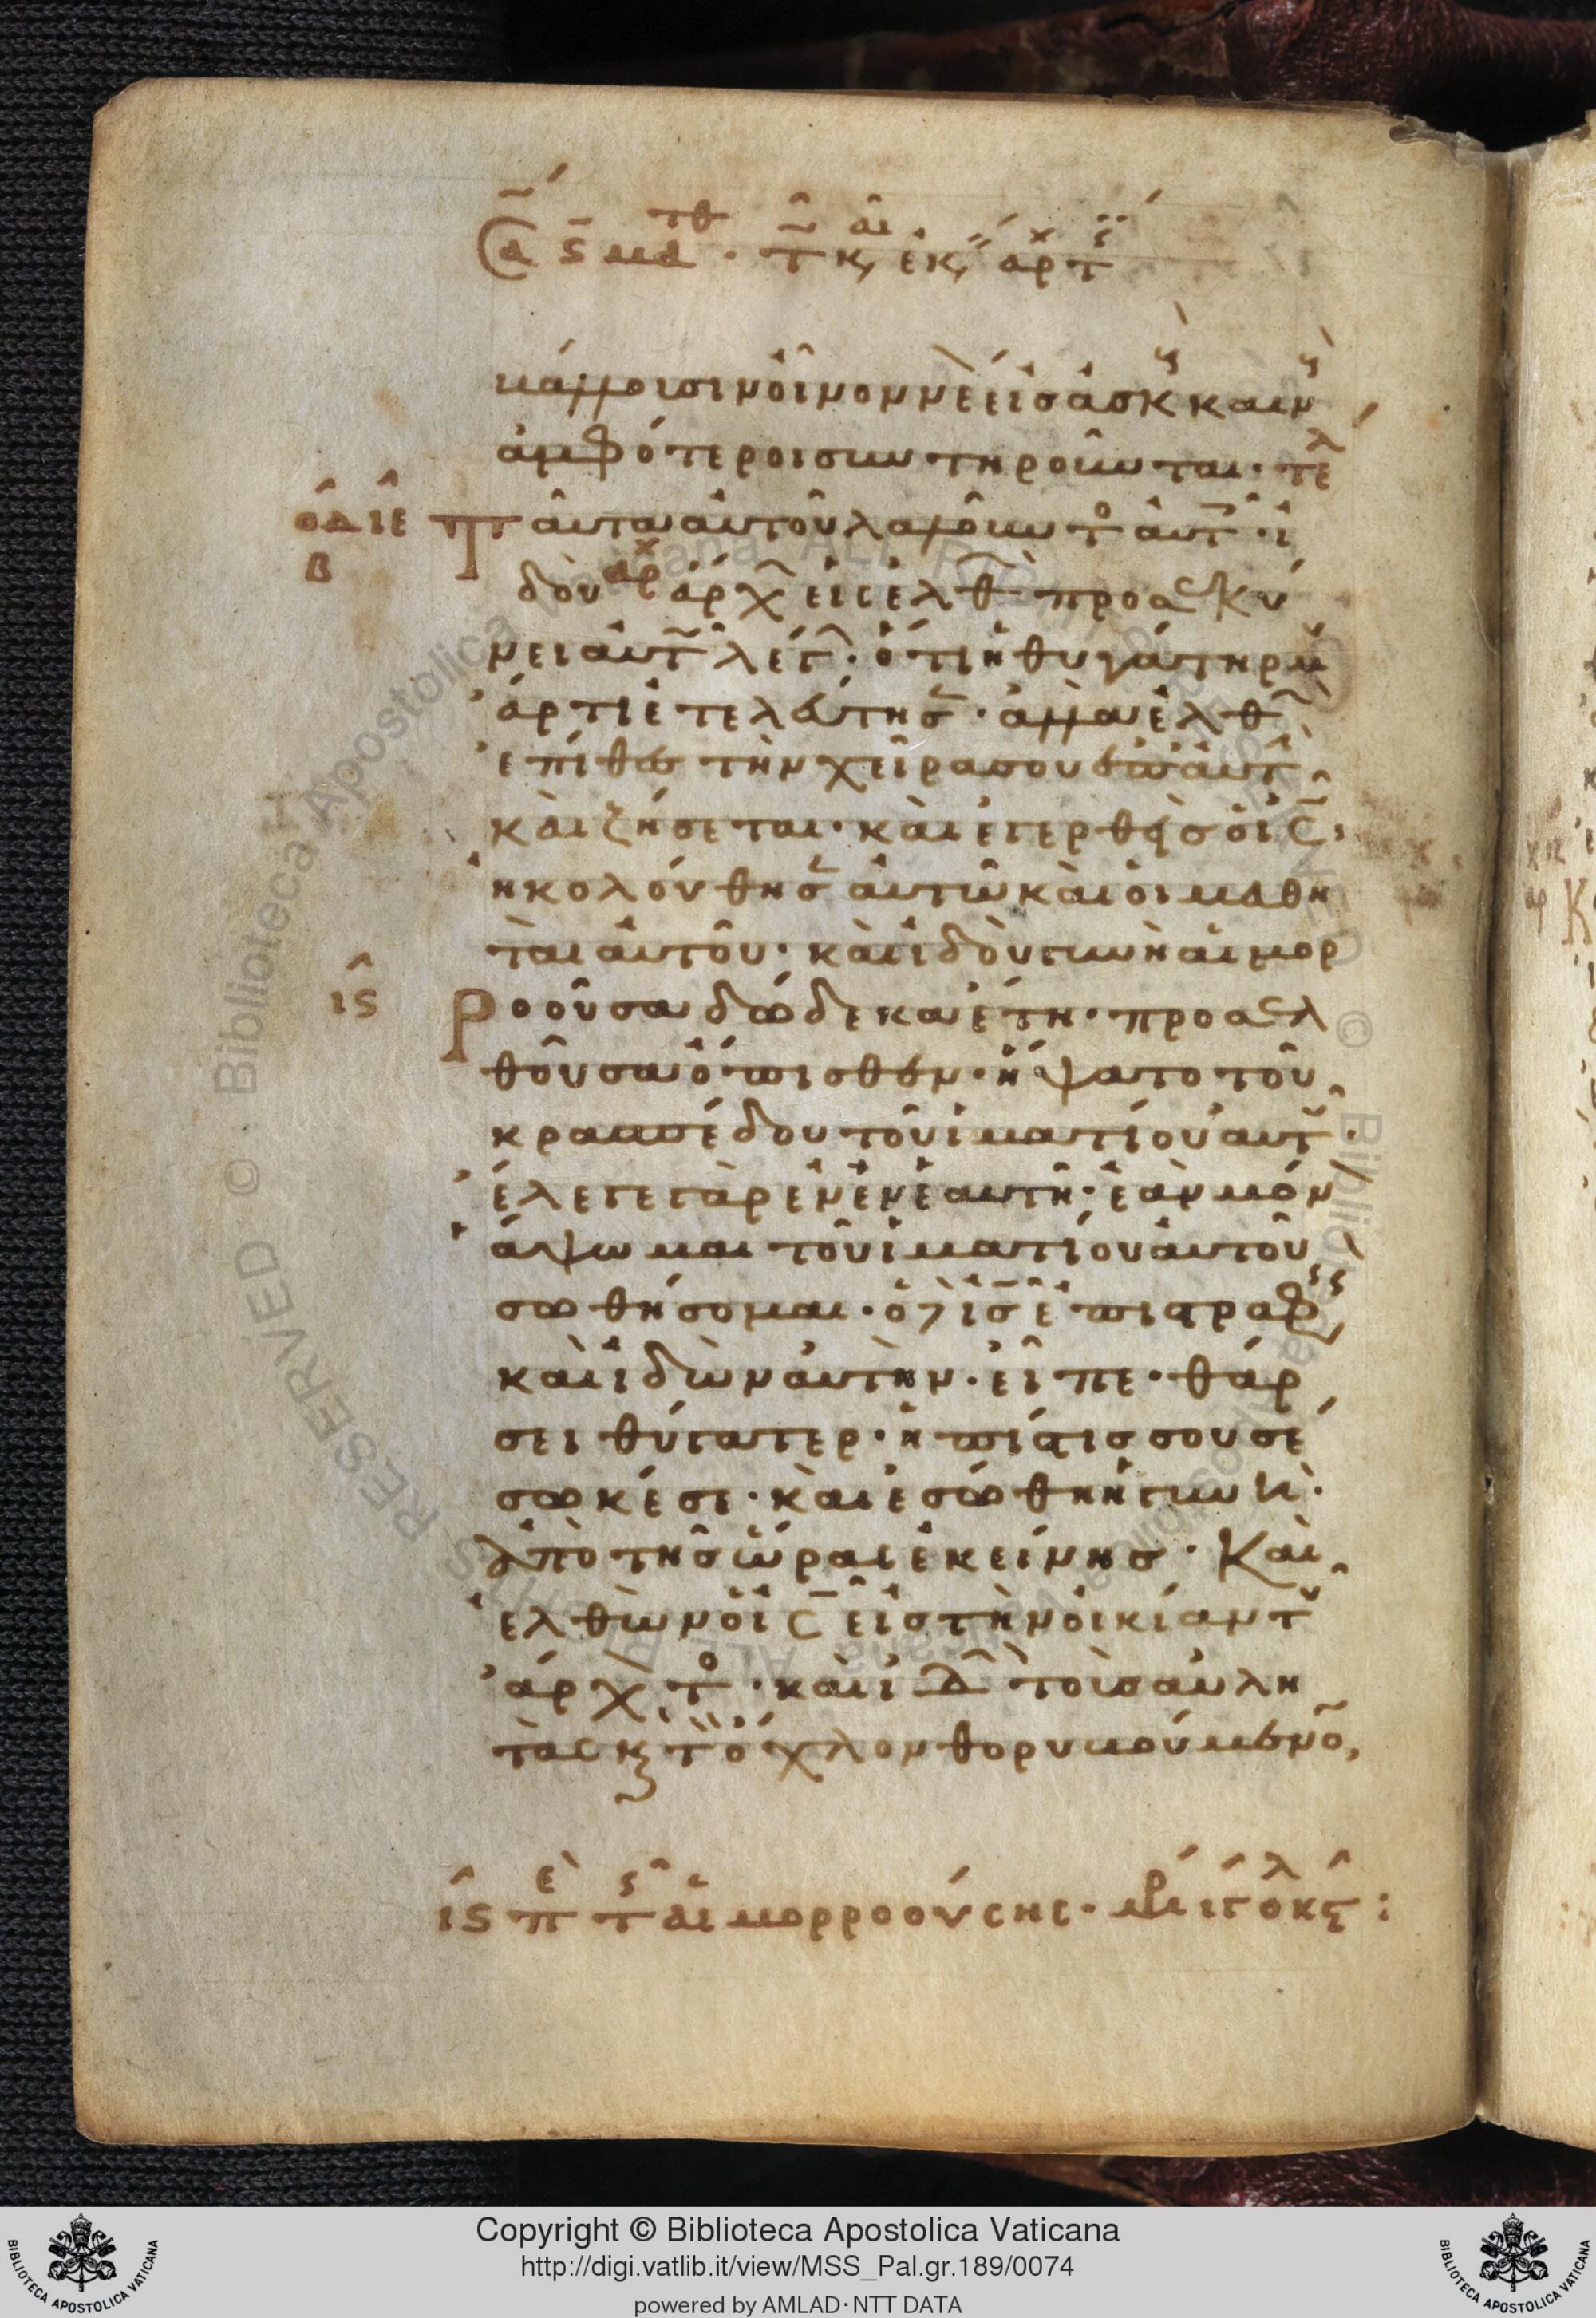 κάλλουσιν οἶνον νέον εἰς ἀσκ καιν
ἀμφότεροι συντηροῦνται· τε
οδ ιε ταῦτα αὐτοῦ λαλοῦντ αὐτ · ἰ
β δοὺ ἀρχ εἷς ἐλθ προσεκύ
νει αὐτ λέγ · ὅτι ἡ θυγάτηρ μ
ἄρτι ἐτελεύτησ · ἀλλὰ ἐλθ
ἐπίθες τὴν χεῖρα σου ἐπ αὐτ
καὶ ζήσεται· καὶ ἐγερθεὶς ὁ ις
ἠκολούθησ αὐτῶ καὶ οἱ μαθη
ταὶ αὐτοῦ· καὶ ἰδοὺ γυνὴ αἱμορ
ις ροοῦσα δώδεκα ἔτη· προσελ
θοῦσα ὄπισθεν· ἥψατο τοῦ
κρασπέδου τοῦ ἱματίου αὐτ ·
ἔλεγε γὰρ ἐν ἑαυτῆ· ἐὰν μόν
ἅψωμαι τοῦ ἱματίου αὐτοῦ
σωθήσομαι· ὁ δ ις ἐπιστραφ
καὶ ἰδὼν αὐτὴν· εἶπε· θάρ
σει θύγατερ· ἡ πίστις σου σέ
σωκέ σε· καὶ ἐσώθη ἡ γυνὴ
ἀπὸ τῆς ὥρας ἐκείνης· Καὶ
ἐλθὼν ὁ ις εἰς τὴν οἰκίαν τ
ἄρχοντο · καὶ ἰδ τοὺς αὐλη
τὰς κ τ ὄχλον θορυβούμενο
ις π τ αἱμορροούσης·
Copyright © Biblioteca Apostolica Vaticana
http://digi.vatlib.it/view/MSS_Pal.gr.189/0074
powered by AMLAD·NTT DATA